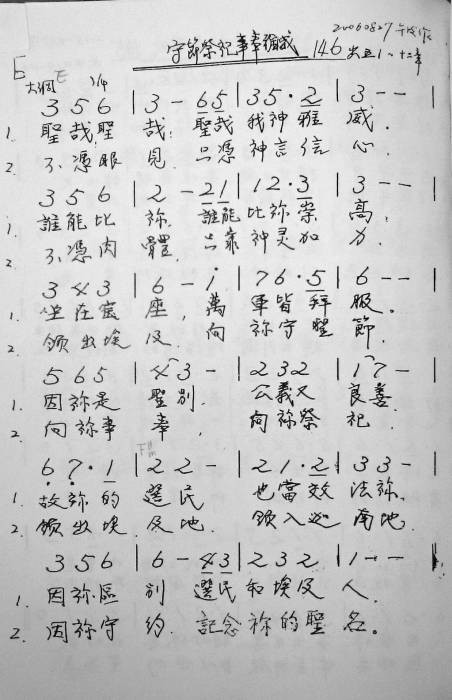 20060827
守節祭祀事奉 146 出五1~十二章
E 大調
3 5 6 | 3 - 6 5 | 3 5 · 2 | 3 - - |
1. 聖哉聖 哉, 聖哉 我神雅 威.
2. 不憑眼 見. 只憑 神言信 心.
3 5 6 | 2 - 2 1 | 1 2 · 3 | 3 - - |
1. 誰能比 祢. 誰能 比祢崇 高.
2. 不憑肉 體. 只靠 神灵加 力.
3 4 3 | 6 - i | 7 6 · 5 | 6 - - |
1. 坐在宝 座, 萬 軍皆拜 服。
2. 领出埃 及. 向 祢守聖 節.
5 6 5 | 4 3 - | 2 3 2 | 1 7 - |
1. 因祢是 聖别. 公義又 良善.
2. 向祢事 奉, 向祢祭 祀.
6 7 · 1 | 2 2 - | 2 1 · 2 | 3 3 - |
1. 故祢的 選民 也當效 法祢.
2. 领出埃 及地. 领入迦 南地.
3 5 6 | 6 - 4 3 | 2 3 2 | 1 - - |
1. 因祢區 别 選民 和埃及 人.
2. 因祢守 約. 記念 祢的聖 名。